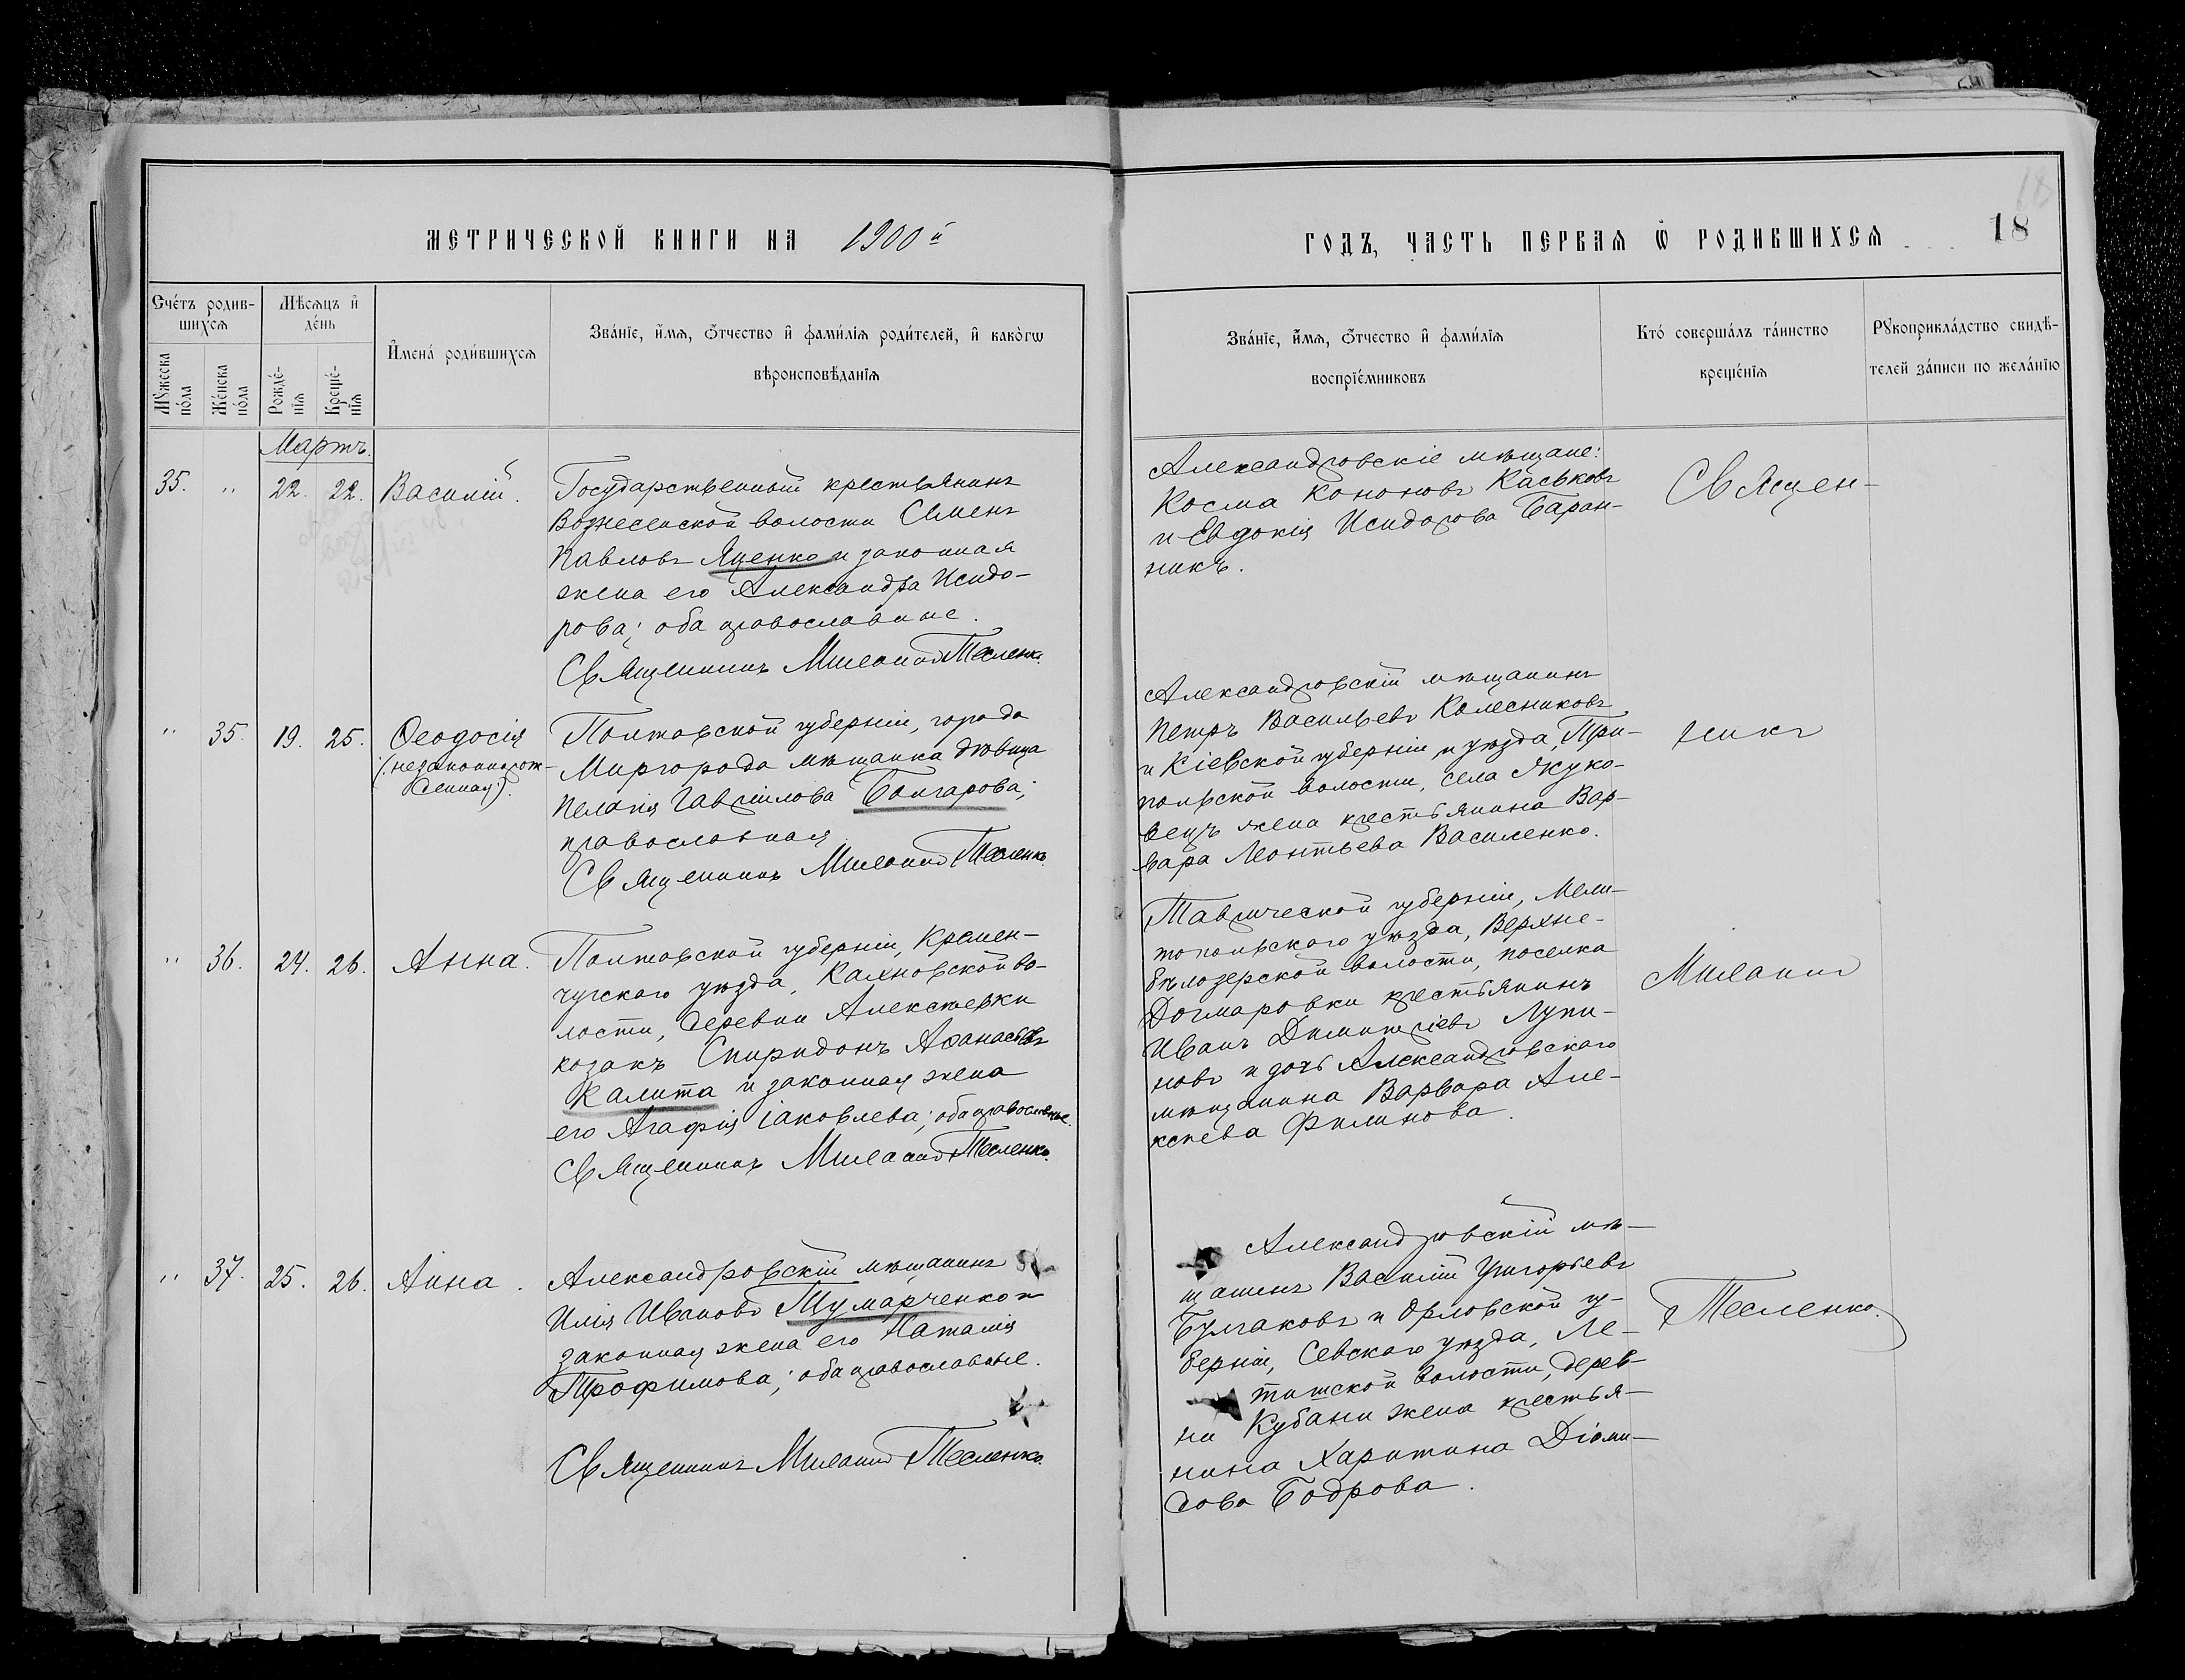 МЕТРИЧЕСКОЙ КНИГИ НА 1900й
Счетъ родив-
шихся
Мѣсяцъ и
день
Мужеска
пола
Женска
пола
Рожде-
нія
Креще-
нія
Имена родившихся
Званіе, имя, отчество и фамилія родителей, и какогѡ
вѣроисповѣданія
Мартъ.
35. " 22. 22. Василій.
Государственный крестьянинъ
Вознесенской волости Семенъ
Павловъ Яценко и законная
жена его Александра Исидо-
рова; оба православные.
Священникъ Милоній Тесленко.
" 35. 19. 25. Ѳеодосія
(незаконнорож-
денная).
Полтавской губерніи, города
Миргорода мѣщанка дѣвица
Пелагія Гавріилова Бочгарова;
православная
Священникъ Тесленко.
" 36. 24. 26. Анна.
Полтавской губерніи, Кремен-
чугскаго уѣзда, волости, деревни Алексѣевки
козакъ Спиридонъ Аѳанасьевъ
Калита и законная жена
его Агафія Іаковлева; оба православные.
Священникъ Тесленко.
" 37. 25. 26. Анна.
Александровскій мѣщанинъ
Илія Ивановъ Шумарченко и
законная жена его Наталія
Трофимова; оба православные.
Священникъ Тесленко.
ГОДЪ, ЧАСТЬ ПЕРВАЯ Ѿ РОДИВШИХСЯ 18
18
Званіе, имя, отчество и фамилія
воспріемниковъ
Кто совершалъ таинство
крещенія
Рукоприкладство свидѣ-
телей записи по желанію
Александровскіе мѣщане:
Косма Кононовъ Каськовъ
и Евдокія Исидорова Баран-
никъ.
Александровскій мѣщанинъ
Петръ Васильевъ Колесниковъ
и Кіевской губерніи и уѣзда, Три-
польской волости, села Жуко-
вецъ жена крестьянина Вар-
вара Леонтьева Василенко.
Таврической губерніи, Мели-
топольскаго уѣзда, Верхне-
бѣлозерской волости, поселка
Догмаровки крестьянинъ
Иванъ Димитріевъ Лупи-
новъ и дочь Александровскаго
мѣщанина Варвара Але-
ксѣева Филинова.
Александровскій мѣ-
щанинъ Василій Григорьевъ
Булгаковъ и Орловской гу-
берніи, Севскаго уѣзда, Ле-
волости, дерев-
ни Кубани жена крестья-
нина Харитина Діоми-
дова Бодрова.
Священ-
никъ
Тесленко.